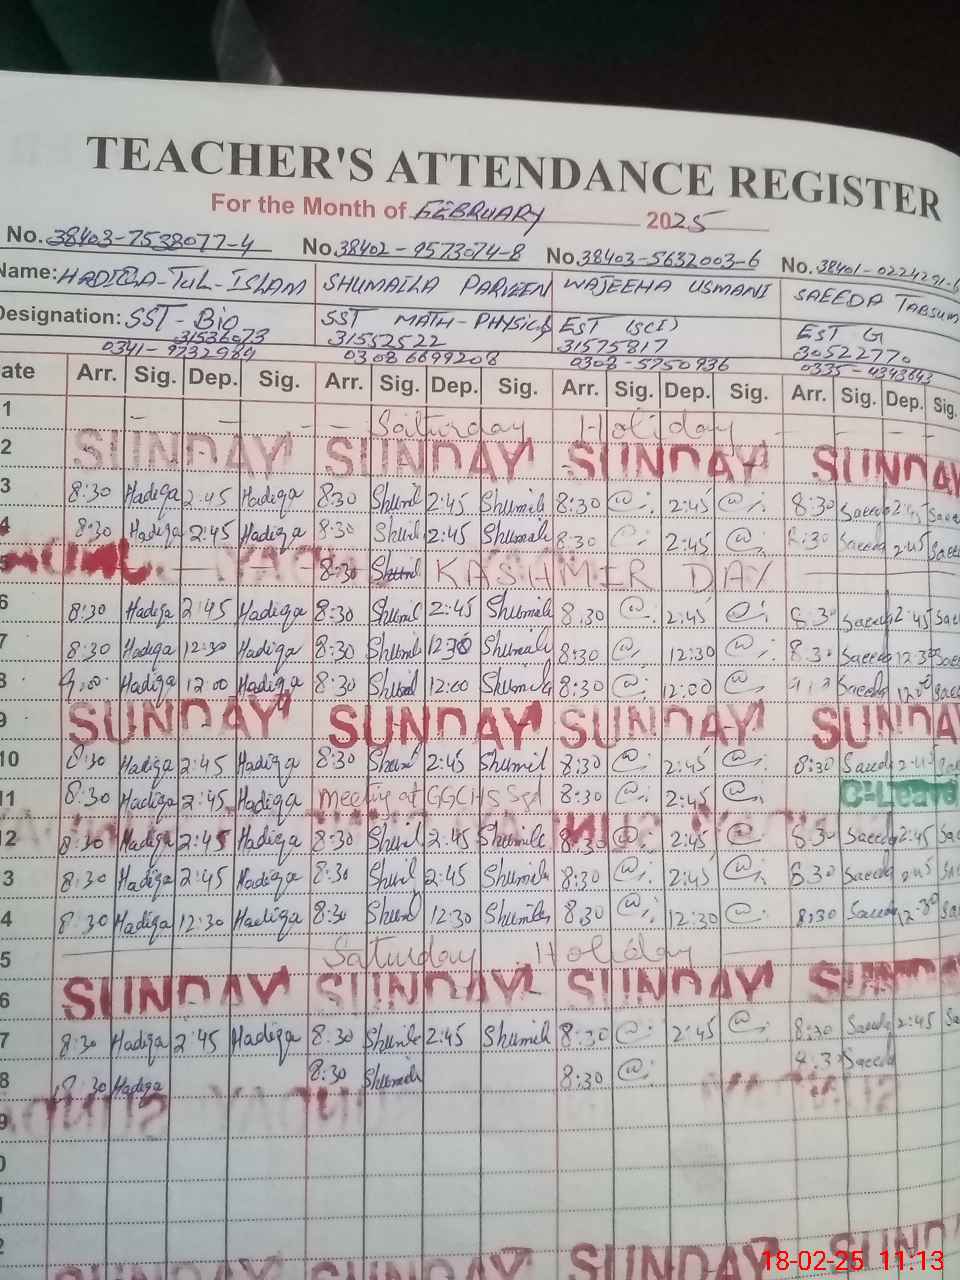 TEACHER'S ATTENDANCE REGISTER
For the Month of FEBRUARY 2025
No. 38403-7538077-4 No. 38402-9573074-8 No. 38403-5632003-6 No. 38401-0224291-6
Name: HADIQA-TUL-ISLAM SHUMAILA PARVEEN WAJEEHA USMANI SAEEDA TABSUM
Designation: SST-Bio SST MATH-PHYSICS EST (SCI) EST G
31536073 31552522 31575817 30522770
0341-9732984 0308 6699208 0303-5750936 0335-4343643
ate Arr. Sig. Dep. Sig. Arr. Sig. Dep. Sig. Arr. Sig. Dep. Sig. Arr. Sig. Dep. Sig.
1 - - - - Saturday Holiday - - - -
2 SUNDAY SUNDAY SUNDAY SUNDAY
3 8:30 Hadiqa 2:45 Hadiqa 8:30 Shumil 2:45 Shumila 8:30 2:45 8:30 Saeeda 2:45 Saee
4 8:30 Hadiqa 2:45 Hadiqa 8:30 Shumil 2:45 Shumila 8:30 2:45 8:30 Saeeda 2:45 Saee
5 8:30 KASHMIR DAY
6 8:30 Hadiqa 2:45 Hadiqa 8:30 Shumil 2:45 Shumila 8:30 2:45 8:30 Saeeda 2:45 Sae
7 8:30 Hadiqa 12:30 Hadiqa 8:30 Shumil 12:30 Shumila 8:30 12:30 8:30 Saeeda 12:30 Saee
8 9:00 Hadiqa 12:00 Hadiqa 8:30 Shumil 12:00 Shumila 8:30 12:00 Saeeda 12:00 Saee
9 SUNDAY SUNDAY SUNDAY SUNDA
10 8:30 Hadiqa 2:45 Hadiqa 8:30 Shumil 2:45 Shumil 8:30 2:45 8:30 Saeeda 2:45
11 8:30 Hadiqa 2:45 Hadiqa Meeting at GGCHS Sgd 8:30 2:45 C-Leave
12 8:30 Hadiqa 2:45 Hadiqa 8:30 Shumil 2:45 Shumila 8:30 2:45 8:30 Saeeda 2:45 Sae
3 8:30 Hadiqa 2:45 Hadiqa 8:30 Shumil 2:45 Shumila 8:30 2:45 8:30 Saeeda 2:45 Sa
4 8:30 Hadiqa 12:30 Hadiqa 8:30 Shumil 12:30 Shumila 8:30 12:30 8:30 Saeeda 12:30
5 Saturday Holiday
6 SUNDAY SUNDAY SUNDAY SUNDA
7 8:30 Hadiqa 2:45 Hadiqa 8:30 Shumila 2:45 Shumila 8:30 2:45 8:30 Saeeda 2:45 Sa
8 8:30 Hadiqa 8:30 Shumila 8:30 8:30 Saeeda
9
0
1
2 SUNDAY SUNDAY SUNDAY SUNDAY
18-02-25 11.13